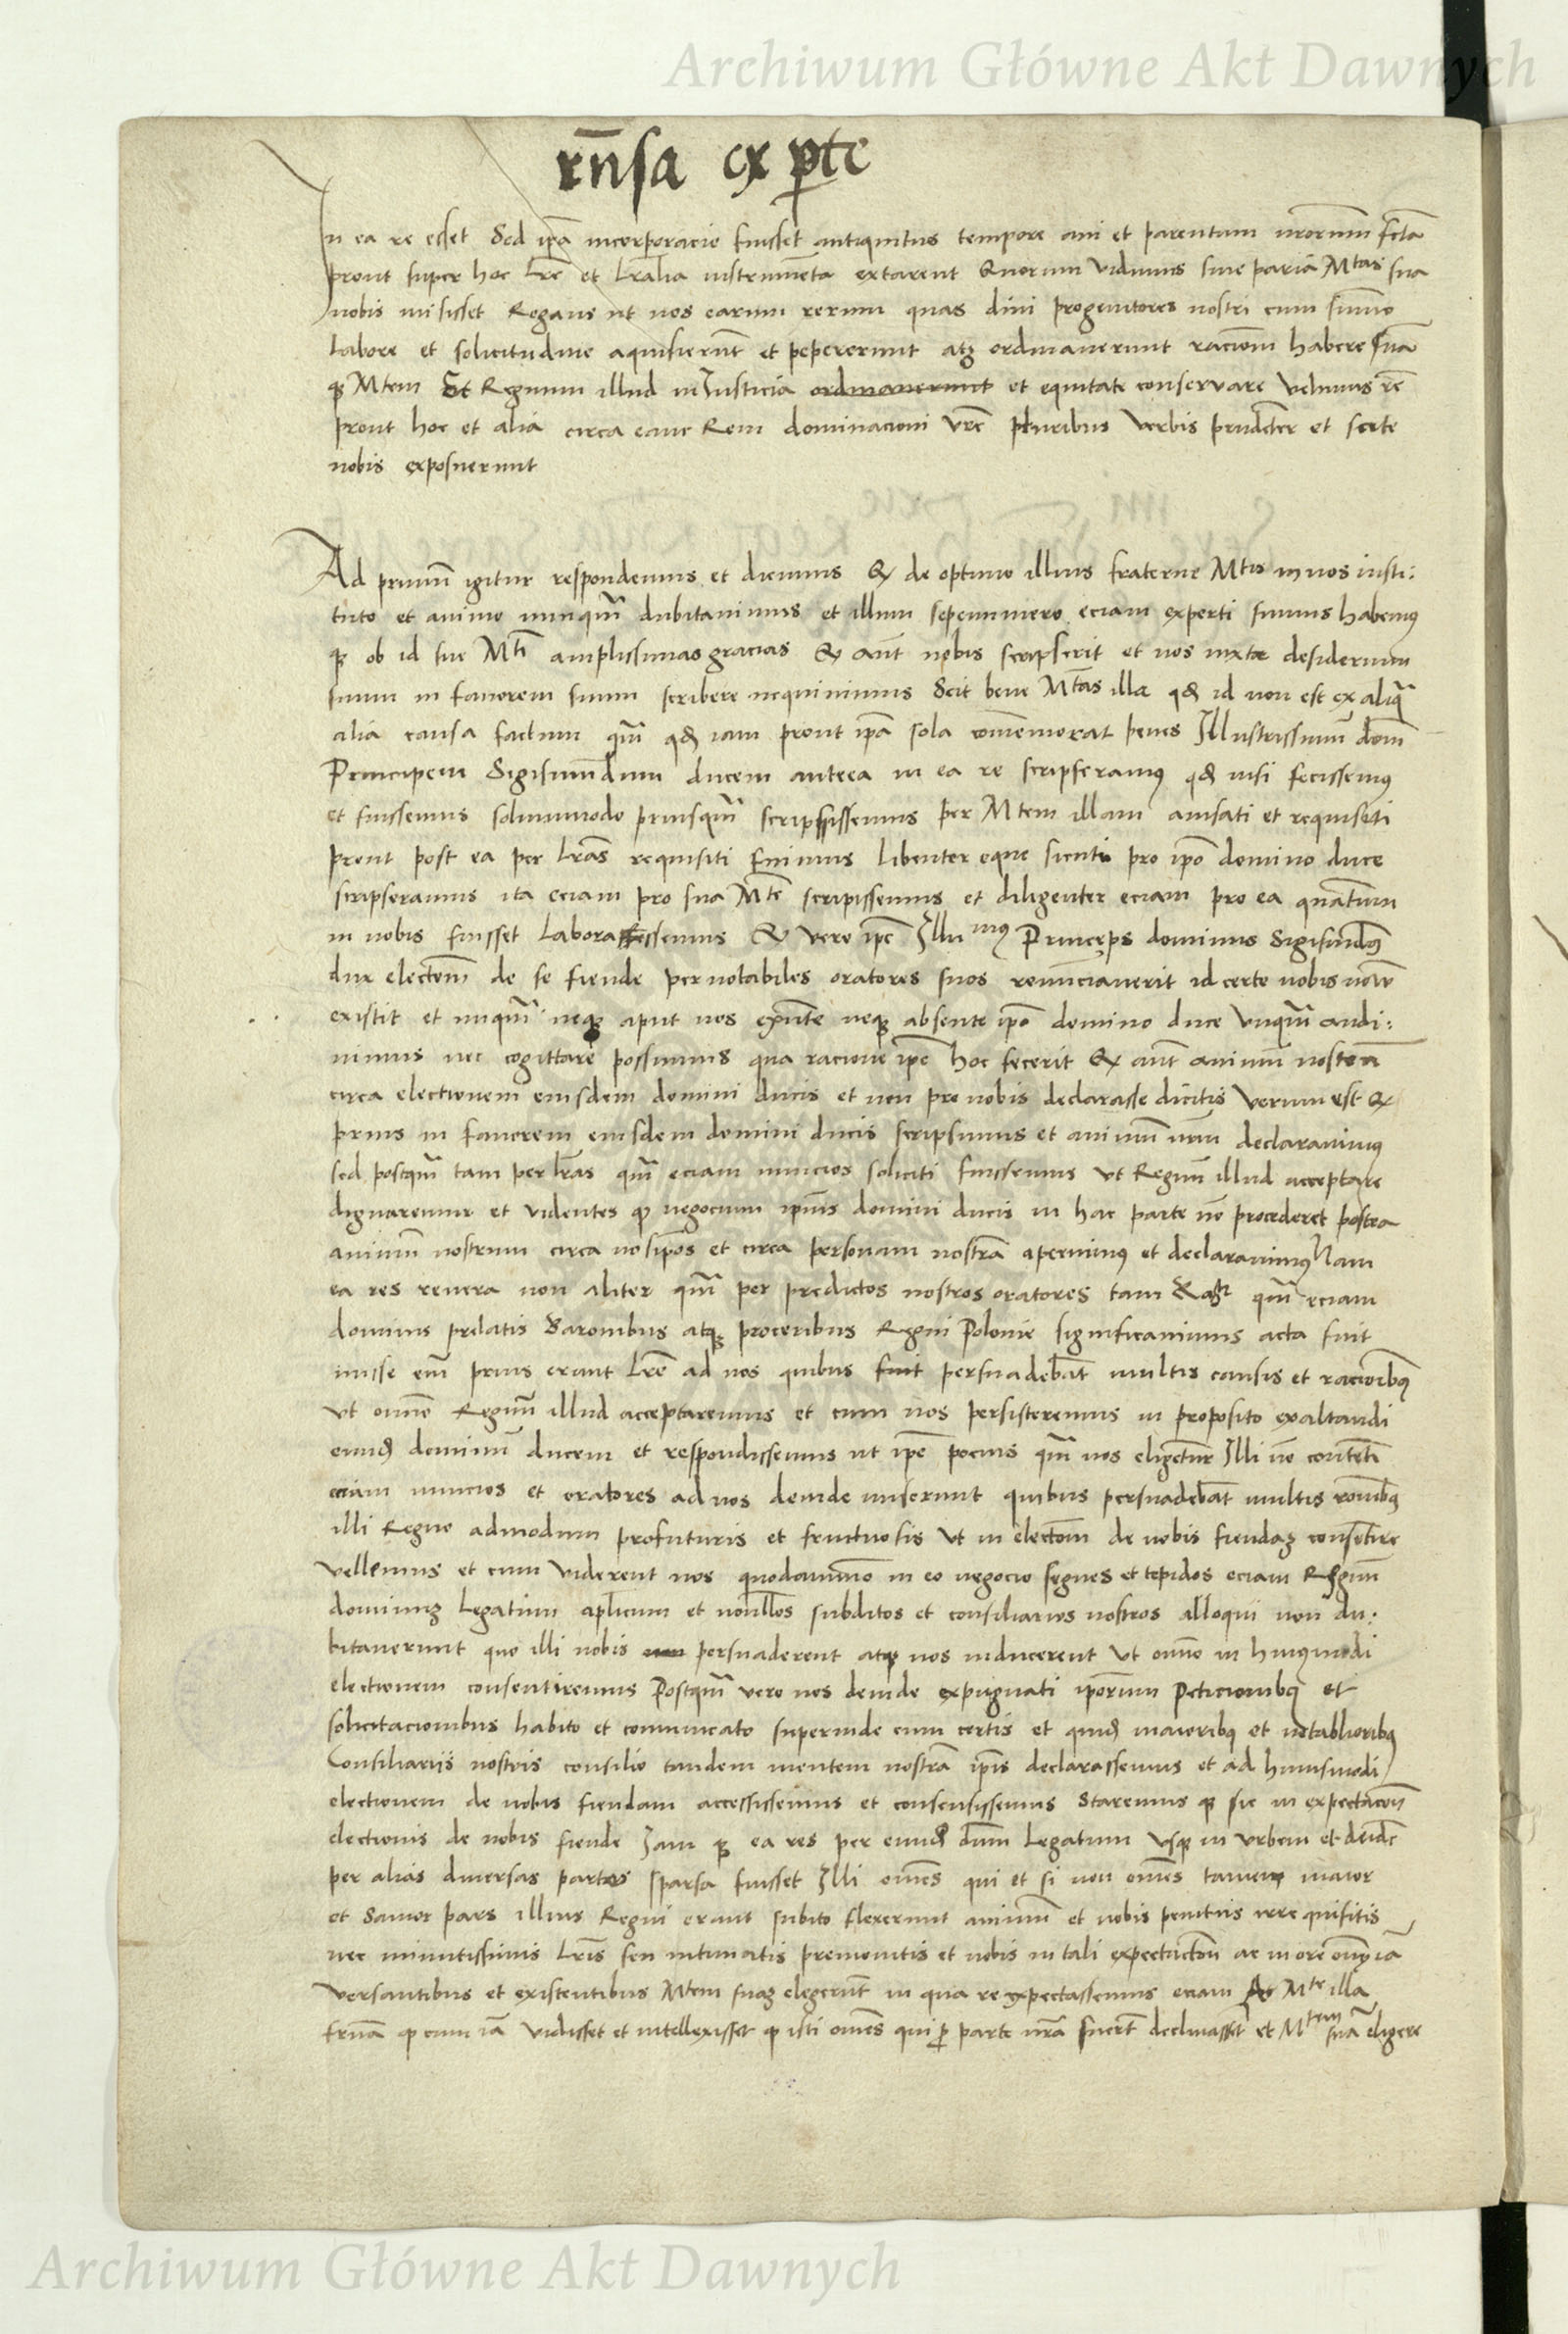 Archiwum Główne Akt Dawnych
rn̄sa ex pte
In ea re esset Sed ip̄a incorporacio fuisset antiquitus tempore aui et parentum nr̄orum fc̄ta
prout super hoc Lr̄e et Lr̄alia instrumenta extarent Quorum vidimus siue paria Mtas sua
nobis misisset Rogans ut nos earum rerum quas diui progenitores nostri cum sum̄o
Labore et solicitudine aquisierūt et pepererunt atqȝ ordinauerunt racionē habere suā
qȝ Mtem Et Regnum illud in Justicia ordinauerunt et equitate conservare velimus
prout hoc et alia circa eanc Rem dominacioni vr̄e pluribus verbis prudēter et
nobis exposuerunt
Ad primū igitur respondemus et dicimus Qȝ de optimo illius fraterne Mtis in nos insti:
tuto et animo nunquā dubitauimus et illum sepenumero eciam experti sumus habemus
qȝ ob id sue Mti amplissimas gracias Qȝ aūt nobis scripserit et nos iuxta desiderium
suum in fauorem suum scribere nequiuimus Scit bene Mtas illa qd id non est ex aliqua
alia causa factum quā qd iam prout ip̄a sola com̄emorat penes Illustrissimū dom̄
Principem Sigismundum ducem antea in ea re scripseramus qd nisi fecissemus
et fuissemus solummodo priusquā scripsissemus per Mtem illam auisati et requisiti
prout post ea per Lr̄as requisiti fuimus libenter eque sicuti pro ip̄o domino duce
scripseramus ita eciam pro sua Mte scripsissemus et diligenter eciam pro ea quantum
in nobis fuisset Laborassemus Qȝ vero ip̄e Illumus Princeps dominus Sigismūdus
dux electōem de se fiende per notabiles oratores suos renunciauerit id certe nobis nouū
existit et nuquā neqȝ aput nos existēte neqȝ absente ip̄o domino duce vnquā audi:
uimus nec cogittare possumus qua racione ip̄e hoc fecerit Qȝ aūt animū nostrum
circa electionem eiusdem domini ducis et non pro nobis declarasse dicitis verum est Qȝ
prius in fauorem eiusdem domini ducis scripsimus et animū nr̄um declarauimus
sed postquā tam per lr̄as quā eciam nuncios soliciti fuissemus vt Regnū illud acceptare
dignaremur et videntes qȝ negocium ipsius domini ducis in hac parte nō procederet postea
animū nostrum circa nosip̄os et circa personam nostrā aperuimus et declarauimus Nam
ea res reuera non aliter quā per predictos nostros oratores tam quā eciam
dominis prelatis Baronibus atqȝ proceribus Regni Polonie significauimus acta fuit
misse em̄ prius erant Lr̄e ad nos quibus fuit persuadebāt multis causis et racionibus
vt omīno Regnū illud acceptaremus et cum nos persisteremus in proposito exaltandi
eundē dominū ducem et respondissemus ut ip̄e pocius quā nos eligeretur Illi nō contēti
eciam nuncios et oratores ad nos deinde miserunt quibus persuadebāt multis ronibus
illi Regno admodum profuturis et fructuosis vt in electōem de nobis fiendaȝ consētire
vellemus et cum viderent nos quodammodo in eo negocio segnes et tepidos eciam Regnū
dominuȝ Legatum apl̄icum et nonullos subditos et consiliarios nostros alloqui non du:
bitauerunt quo illi nobis persuaderent atqȝ nos inducerent vt omīno in huiusmodi
electionem consentiremus Postquā vero nos deinde expugnati ip̄orum peticionibus et
solicitacionibus habito et comunicato superinde cum certis et quidē maioribus et notabilioribus
Consiliariis nostris consilio tandem mentem nostrā ip̄is declarassemus et ad huiusmodi
electionem de nobis fiendam accessissemus et consensissemus staremus qȝ sic in expectacōe
electionis de nobis fiende Jam qȝ ea res per eundē dūm Legatum vsqȝ in vrbem et deinde
per alias diuersas partes sparsa fuisset Illi omnes qui et si non omnes tamen maior
et sanior pars illius Regni erant subito flexerunt animū et nobis penitus irrequisitis
nec minutissimis Lr̄is seu intimatis premonitis et nobis in tali expectacōe ac in ore omniū
versantibus et existentibus Mtem suaȝ elegerūt in qua re expectassemus eciam Ab Mte illa
frn̄a qȝ cum iā vidisset et intellexisset qȝ isti omnes qui pro parte nr̄a fuerūt declinassēt et Mtem suā eligere
Archiwum Główne Akt Dawnych